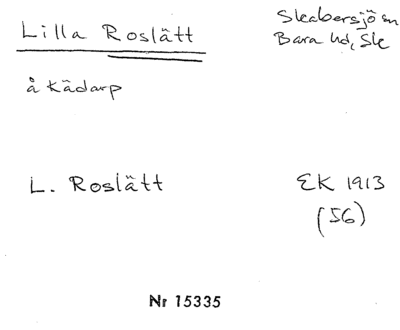 Lilla Roslätt
Skabersjö sn
Bara hd, Sk
å Kädarp
L. Roslätt
EK 1913
(56)
Nr 15335